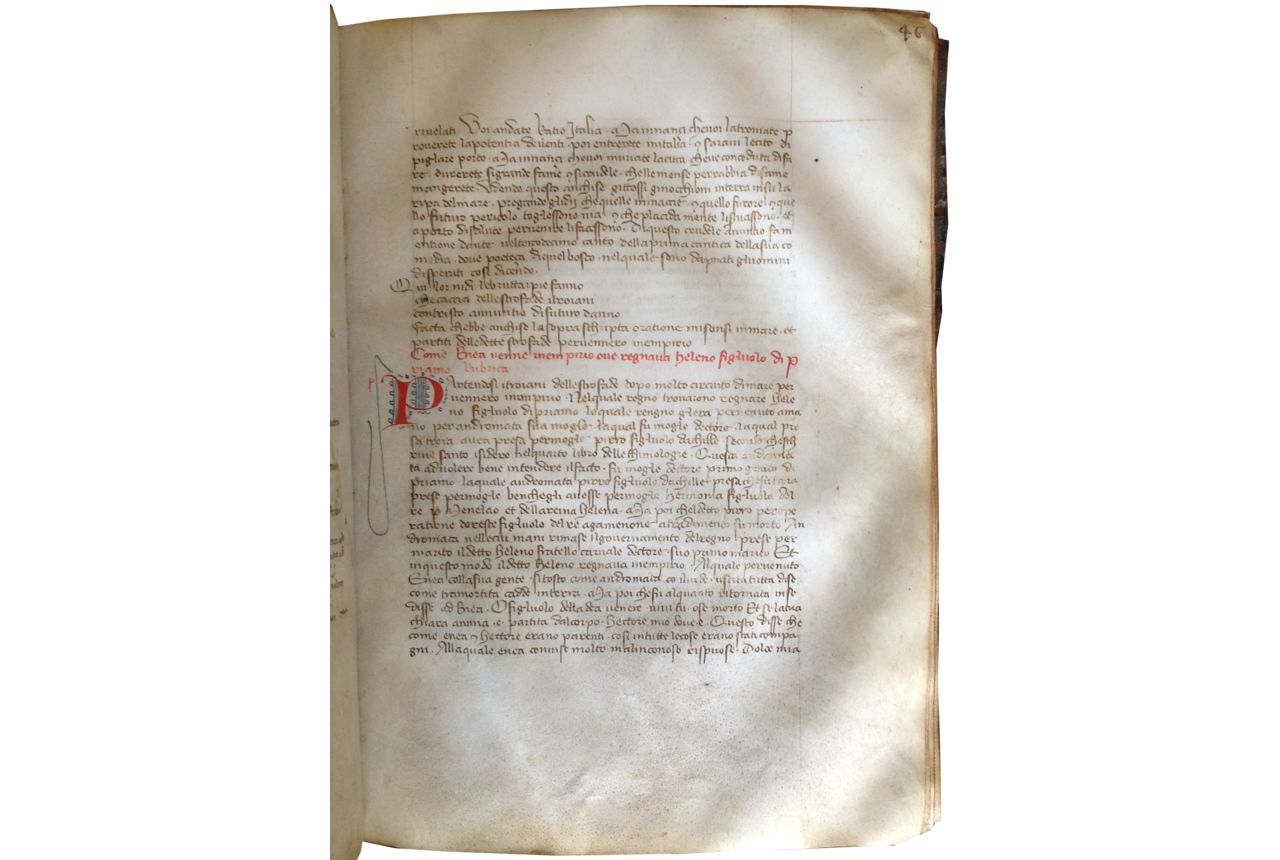 46
rivelati. Voi andate verso Italia. Ma innanzi che voi latroviate p
roverete lapotentia deventi. poi enterrete initalia. et saravi lecito di
pigliare porto. Ma innanzi che voi muriate lacitta che ve conceduta disu
re. durerete sigrande fame et sicrudele. chelle mense perrabbia di fame
mangerete. Udendo questo anchise gittossi ginocchioni interra insu la
ripa del mare. pregando glidij che quelle minaccie. et quello furore et que
llo futuro pericolo togliessono via. et che placida mente lisalvassono. et
aporto disalute pervenire lifacessono. Di questo crudele annuntio fa m
entione dante nel terzodecimo canto della prima cantica della sua co
media. dove poeteza di quel bosco. nelquale sono dapnati gluomini
disperati cosi dicendo.
Quivi lor nidi lebrutte arpie fanno
che cacciar dellestrofade itroiani
contristo annuntio di futuro danno
Facta chebbe anchise la sopra schripta oratione misonsi inmare. et
partiti delledette strofade pervennero inempirio
Come Enea venne inempirio ove regnava heleno figliuolo di p
riamo Rubrica
p
Partendosi itroiani dellestrofade dopo molto circuito dimare per
vennero inempirio. Nelquale regno trovarono regnare hele
no figliuolo dipriamo loquale rengno glera pervenuto ama
no per andromata sua moglie. laqual fu moglie dectore. laqual pre
sa troia avea presa permoglie pirro figliuolo dachille. secondo cheschr
rive santo isidero nelquarto libro delle ethimologie. Questa androma
ta advolere bene intendere ilfacto. fu moglie dectore primo genito di
priamo. laquale andromata pirro figliuolo dachille. presa chefu troia
prese permoglie benchegli avesse permoglie hermonia figliuola del
re Menelao et dellareina helena. Ma poi cheldetto pirro per ope
ratione doreste figliuolo del re agamenone atradimento fu morto. An
dromata nellecui mani rimase ilgovernamento delregno prese per
marito ildetto heleno fratello carnale dectore. suo primo marito. Et
inquesto modo ildetto heleno regnava inempirio. Alquale pervenuto
Enea collasua gente. sitosto come andromata co llui de. uscita tutta dise
come tramortita cadde interra. Ma poi chefu alquanto ritornata inse
disse ad Enea. O figliuolo della dea venere. vivi tu. ose morto Et se latua
chiara anima. e. partita dalcorpo. Hectore mio dove e. Questo disse che
come enea et Hectore erano parenti. cosi intutte lecose erano stati compa
gni. Allaquale enea col viso molto malinconoso rispuose. Dolce mia